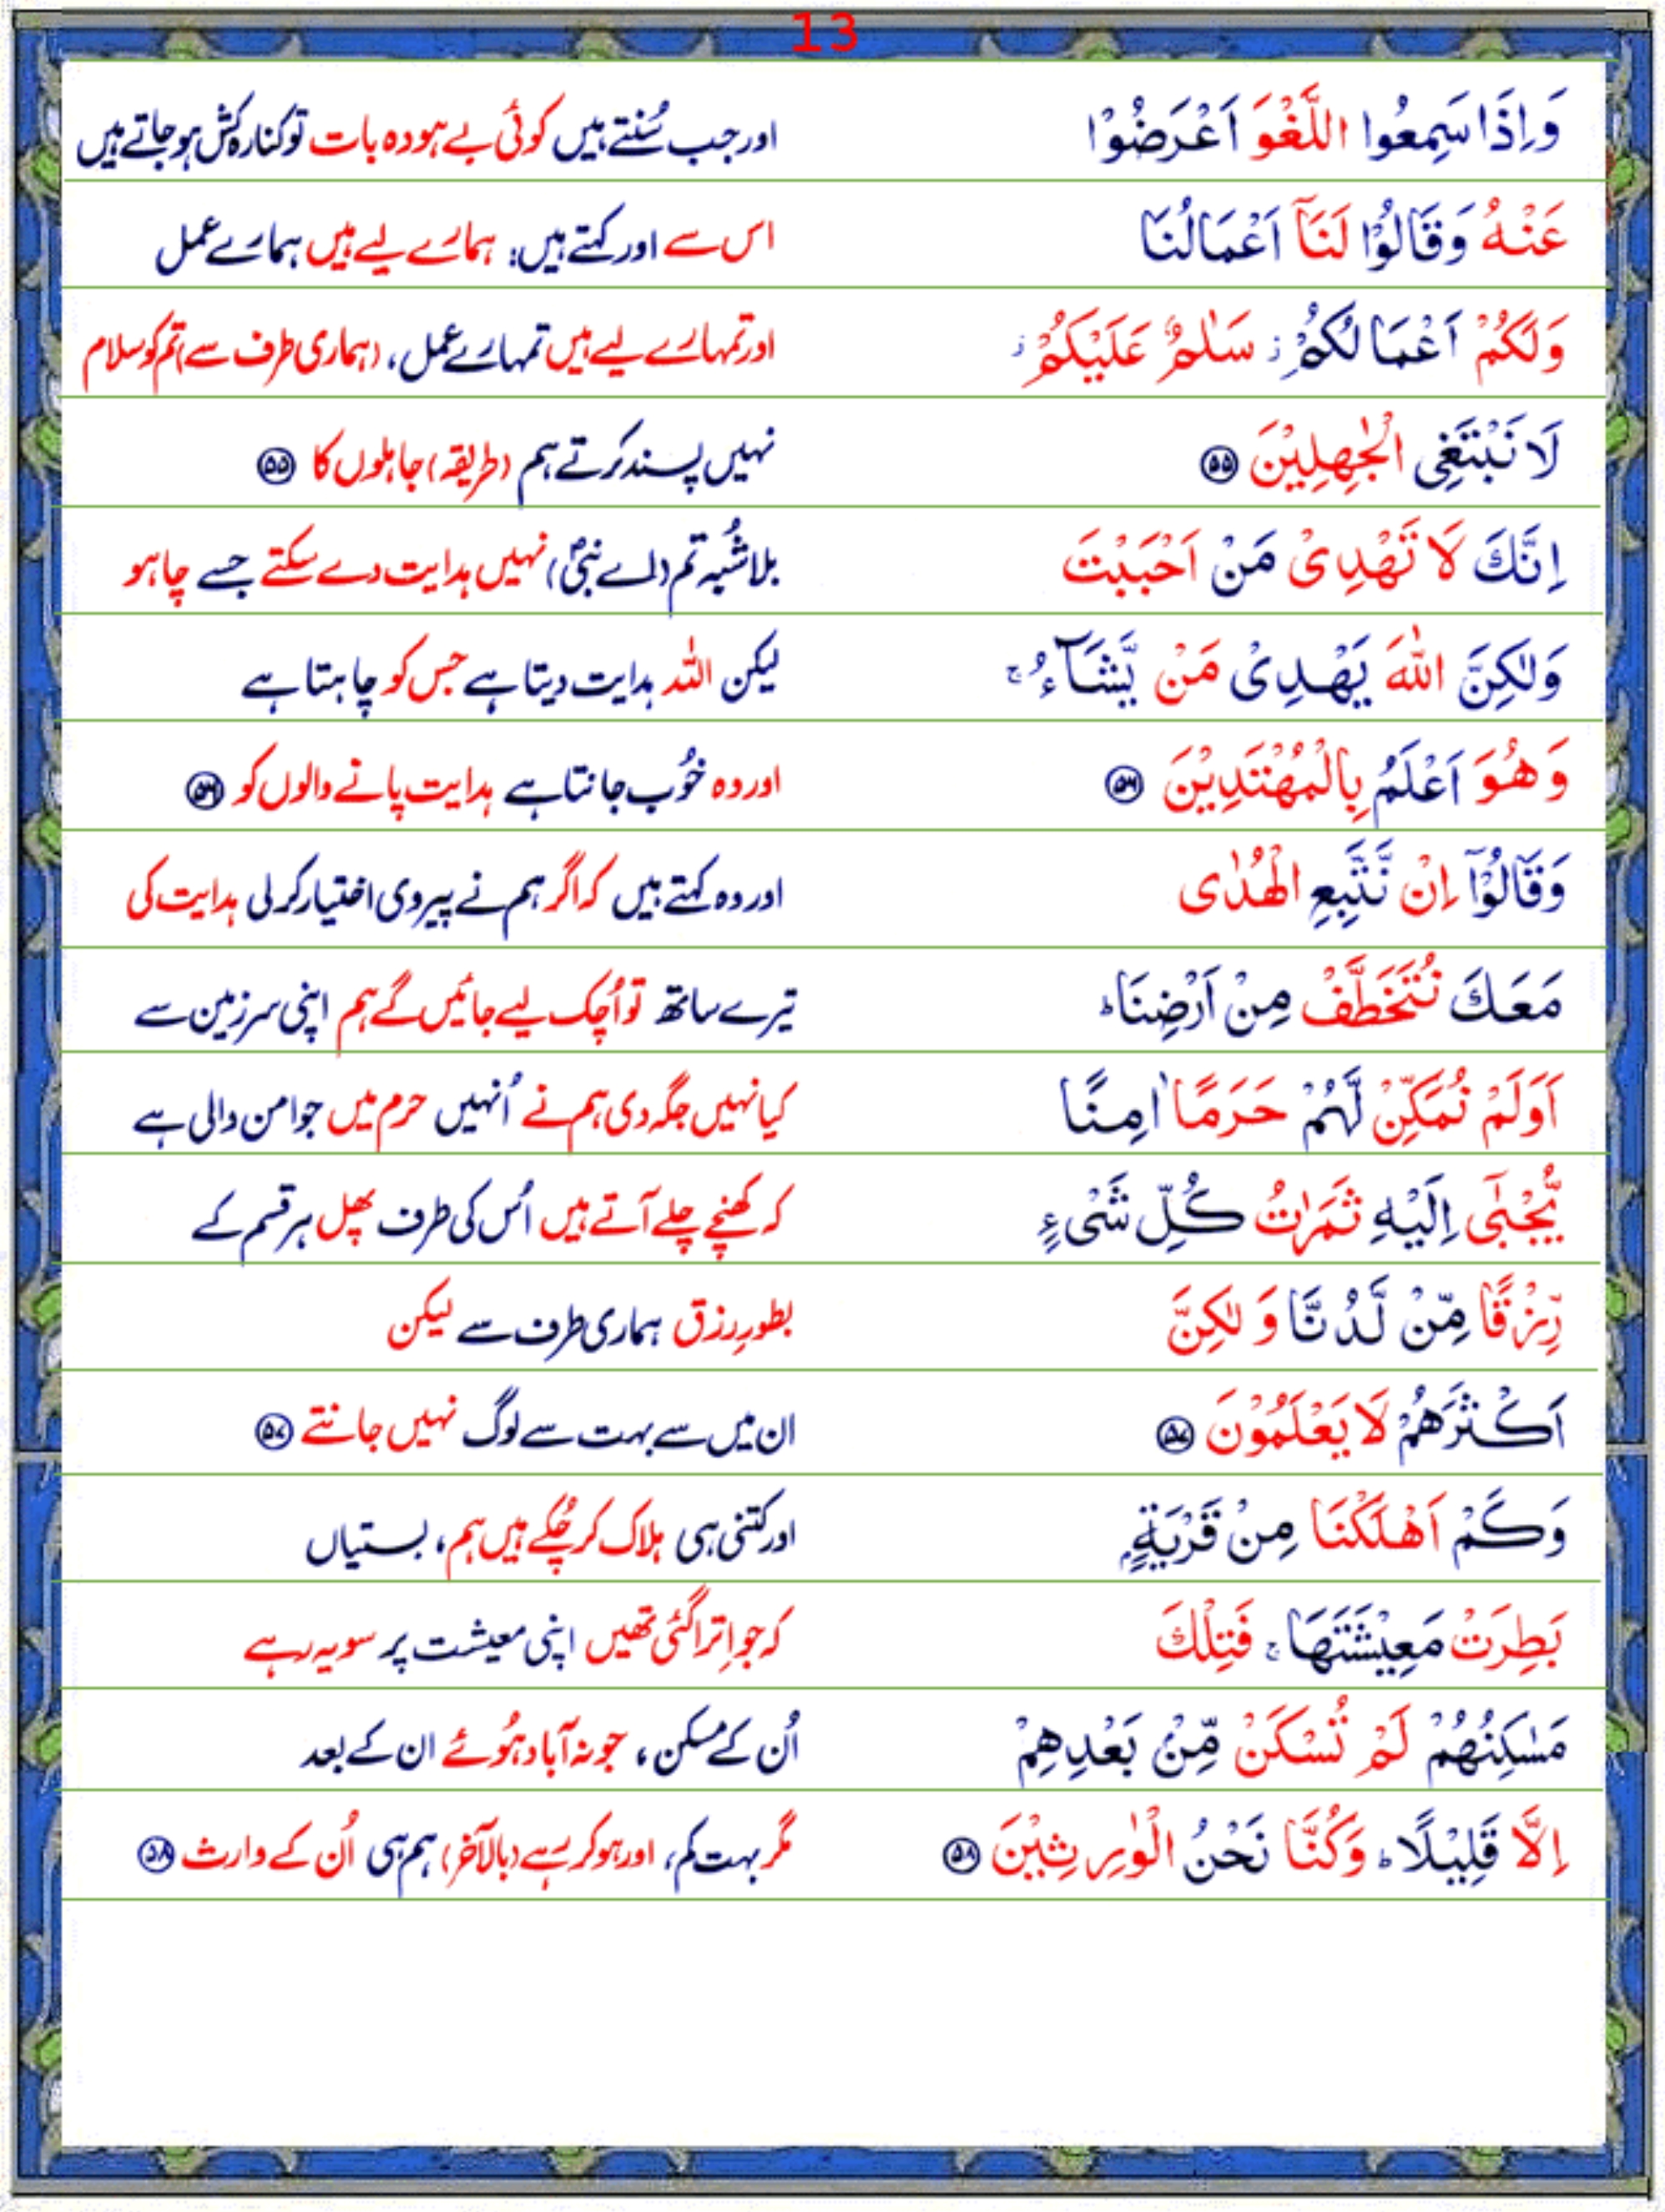 13
وَاِذَا سَمِعُوا اللَّغْوَ اَعْرَضُوْا اور جب سُنتے ہیں کوئی بے ہودہ بات تو کنارہ کش ہو جاتے ہیں
عَنْهُ وَقَالُوْا لَنَاۤ اَعْمَالُنَا اس سے اور کہتے ہیں: ہمارے لیے ہیں ہمارے عمل
وَلَكُمْ اَعْمَالُكُمْ ز سَلٰمٌ عَلَيْكُمْ ز اور تمہارے لیے ہیں تمہارے عمل، (ہماری طرف سے) تم کو سلام
لَا نَبْتَغِى الْجٰهِلِيْنَ ۵۵ نہیں پسند کرتے ہم (طریقہ) جاہلوں کا ۵۵
اِنَّكَ لَا تَهْدِىْ مَنْ اَحْبَبْتَ بلاشُبہ تم (اے نبیؐ) نہیں ہدایت دے سکتے جسے چاہو
وَلٰكِنَّ اللّٰهَ يَهْدِىْ مَنْ يَّشَآءُ ج لیکن اللہ ہدایت دیتا ہے جس کو چاہتا ہے
وَهُوَ اَعْلَمُ بِالْمُهْتَدِيْنَ ۵۶ اور وہ خُوب جانتا ہے ہدایت پانے والوں کو ۵۶
وَقَالُوْۤا اِنْ نَّتَّبِعِ الْهُدٰى اور وہ کہتے ہیں کہ اگر ہم نے پیروی اختیار کر لی ہدایت کی
مَعَكَ نُتَخَطَّفْ مِنْ اَرْضِنَا ط تیرے ساتھ تو اُچک لیے جائیں گے ہم اپنی سرزمین سے
اَوَلَمْ نُمَكِّنْ لَّهُمْ حَرَمًا اٰمِنًا کیا نہیں جگہ دی ہم نے اُنہیں حرم میں جو امن والی ہے
يُّجْبٰٓى اِلَيْهِ ثَمَرٰتُ كُلِّ شَىْءٍ کہ کھنچے چلے آتے ہیں اُس کی طرف پھل ہر قسم کے
رِّزْقًا مِّنْ لَّدُنَّا وَ لٰكِنَّ بطورِ رزق ہماری طرف سے لیکن
اَكْثَرَهُمْ لَا يَعْلَمُوْنَ ۵۷ ان میں سے بہت سے لوگ نہیں جانتے ۵۷
وَكَمْ اَهْلَكْنَا مِنْ قَرْيَةٍۭ اور کتنی ہی ہلاک کر چُکے ہیں ہم، بستیاں
بَطِرَتْ مَعِيْشَتَهَا ج فَتِلْكَ کہ جو اِترا گئی تھیں اپنی معیشت پر سو یہ رہے
مَسٰكِنُهُمْ لَمْ تُسْكَنْ مِّنْۢ بَعْدِهِمْ اُن کے مسکن، جو نہ آباد ہُوئے ان کے بعد
اِلَّا قَلِيْلًا ط وَكُنَّا نَحْنُ الْوٰرِثِيْنَ ۵۸ مگر بہت کم، اور ہو کر رہے (بالآخر) ہم ہی اُن کے وارث ۵۸